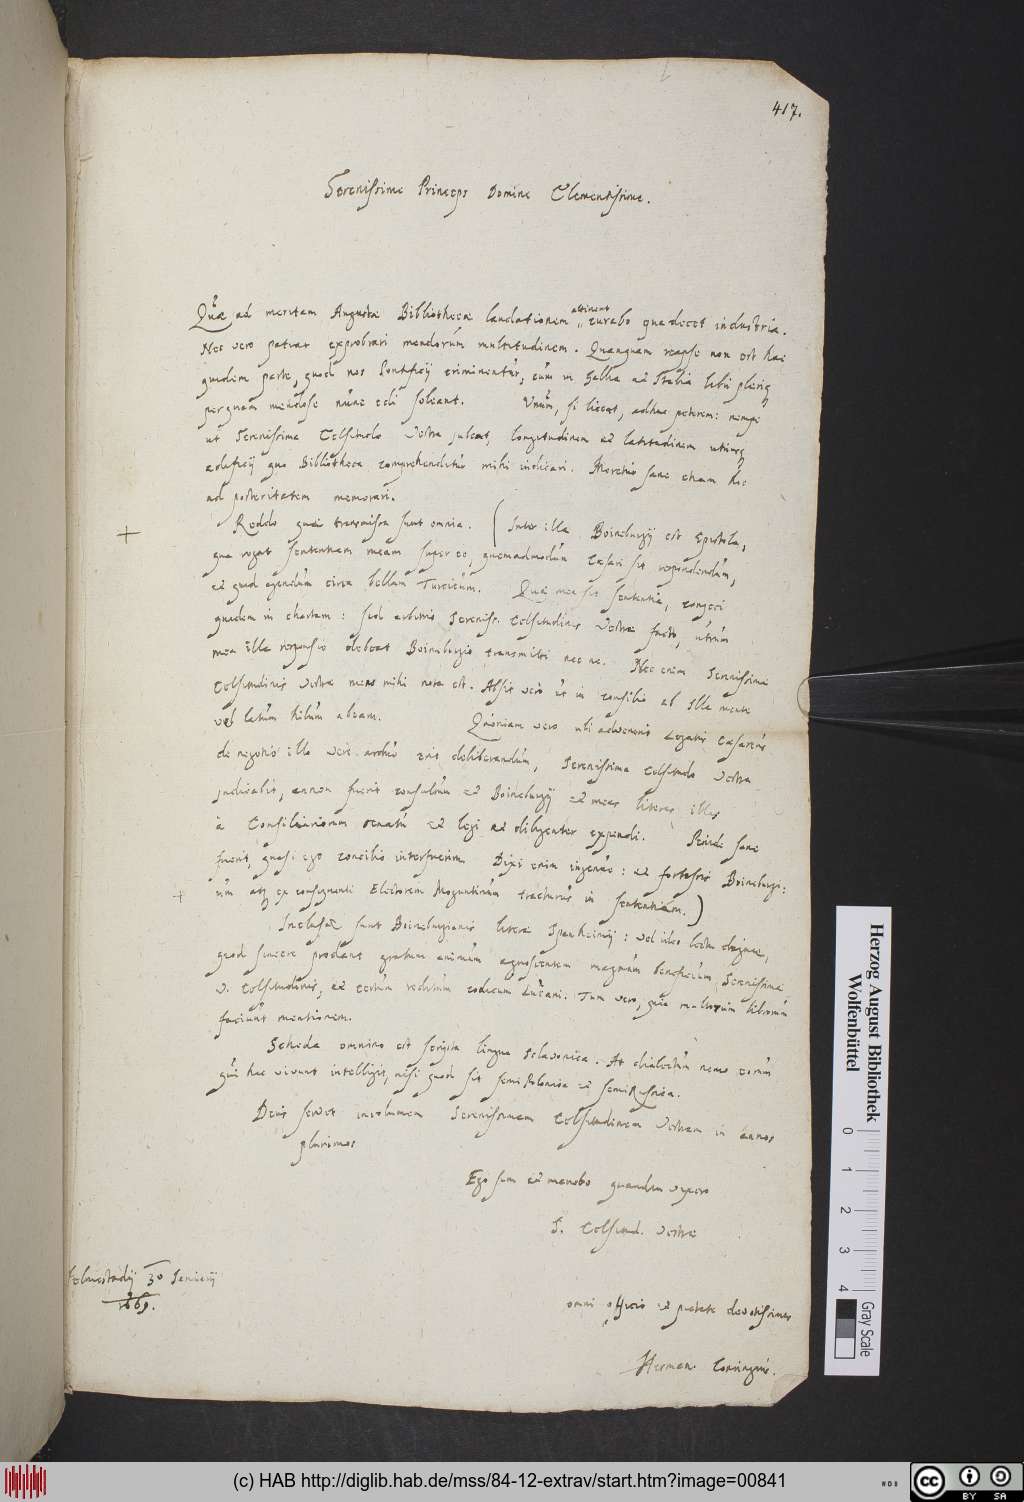 417.
Serenissime Princeps Domine Clementissime.
Quae ad meritam Augustae Bibliothecae laudationem attinent curabo qua decet industria.
Nec vero patiar exprobrari mendorum multitudinem. Quanquam reapse non est hac
quidem parte, quod nos Pontificij criminentur, cum in Gallia et Italia libri pleriq
perquam mendose nunc edi soleant. Unum, si liceat, adhuc peterem: nempe
ut Serenissima Celsitudo Vestra jubeat, longitudinem et latitudinem utriusq
aedificij quo Bibliotheca comprehenditur mihi indicari. Meretur sane etiam hoc
ad posteritatem memorari.
Reddo quae transmissa sunt omnia. (Inter illa Boineburgij est Epistola,
qua rogat sententiam meam super eo, quemadmodum Caesari sit respondendum,
et quid agendum circa bellum Turcicum. Quae mea sit sententia, conjeci
quidem in chartam: sed arbitrio Sereniss. Celsitudinis Vestrae facto, utrum
mea illa responsio debeat Boineburgio transmitti nec ne. Nec enim Serenissimae
Celsitudinis Vestrae mens mihi nota est. Absit vero ut in consilio ab illa mente
vel latum pilum abeam. Quoniam vero ubi advenerit Legatus Caesareus
de negotio illo vere arduo erit deliberandum, Serenissima Celsitudo Vestra
judicabit, annon fuerit consultum et Boineburgij et meas literas illas
à Consiliariorum senatu et legi et diligenter expendi. Perinde sane
fuerit, quasi ego concilio interfuerim. Dixi enim ingenue: et fortassis Boineburgi:
um atq ex consequenti Electorem Moguntinum tracturus in sententiam.)
Inclusae sunt Boineburgianis literae Spanhemij: vel ideo lectu dignae,
quod sincere prodant gratum animum agnoscentem magnum beneficium Serenissimae
V. Celsitudinis, et certum reditum codicum Lucani. Tum vero, quia multorum librorum
faciunt mentionem.
Scheda omnino est scripta lingua Sclavonica. At dialectum nemo eorum
qui hac vivunt intelligit, nisi quod sit semiPolonica et semiRussica.
Deus servet incolumem Serenissimam Celsitudinem Vestram in annos
plurimos
Ego sum et manebo quamdiu vixero
S. Celsitud. Vestrae
Helmestadij 30 Januarij
1663.
omni officio et pietate devotissimus
Herman. Conringius.
Herzog August Bibliothek
Wolfenbüttel
0 1 2 3 4
Gray Scale
(c) HAB http://diglib.hab.de/mss/84-12-extrav/start.htm?image=00841
WDB
cc
BY SA